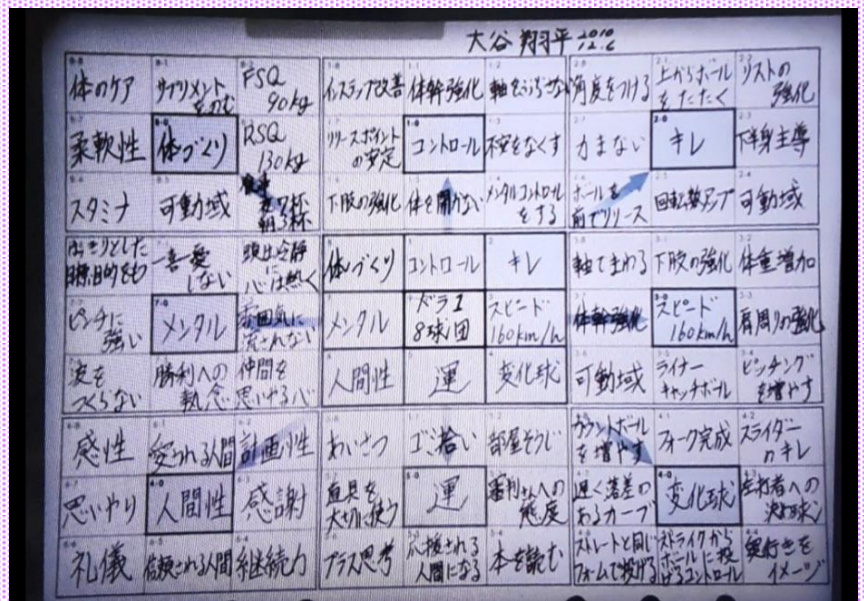 大谷 翔平 2010 12.6
体のケア サプリメントをのむ FSQ 90kg インステップ改善 体幹強化 軸をぶらさない 角度をつける 上からボールをたたく リストの強化
柔軟性 体づくり RSQ 130kg リリースポイントの安定 コントロール 不安をなくす 力まない キレ 下半身主導
スタミナ 可動域 食事 夜7杯 朝3杯 下肢の強化 体を開かない メンタルコントロールをする ボールを前でリリース 回転数アップ 可動域
はっきりとした目標、目的をもつ 一喜一憂しない 頭は冷静に 心は熱く 体づくり コントロール キレ 軸でまわる 下肢の強化 体重増加
ピンチに強い メンタル 雰囲気に流されない メンタル ドラ1 8球団 スピード 160km/h 体幹強化 スピード 160km/h 肩周りの強化
波をつくらない 勝利への執念 仲間を思いやる心 人間性 運 変化球 可動域 ライナーキャッチボール ピッチングを増やす
感性 愛される人間 計画性 あいさつ ゴミ拾い 部屋そうじ カウントボールを増やす フォーク完成 スライダーのキレ
思いやり 人間性 感謝 道具を大切に使う 運 審判さんへの態度 遅く落差のあるカーブ 変化球 左打者への決め球
礼儀 信頼される人間 継続力 プラス思考 応援される人間になる 本を読む ストレートと同じフォームで投げる ストライクからボールに投げるコントロール 奥行きをイメージ